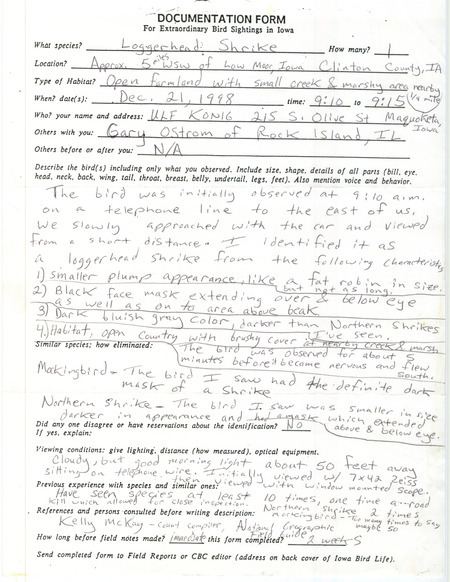 DOCUMENTATION FORM
For Extraordinary Bird Sightings in Iowa
What species? Loggerhead Shrike How many? 1
Location? Approx. 5 miles WSW of Low Moor, Iowa Clinton County, IA
Type of Habitat? Open farmland with small creek & marshy area nearby
1/4 mile
When? date(s): Dec. 21, 1998 time: 9:10 to 9:15
Who? your name and address: ULF KONIG 215 S. Olive St Maquoketa, Iowa
Others with you: Gary Ostrom of Rock Island, IL
Others before or after you: N/A
Describe the bird(s) including only what you observed. Include size, shape, details of all parts (bill, eye,
head, neck, back, wing, tail, throat, breast, belly, undertail, legs, feet). Also mention voice and behavior.
The bird was initially observed at 9:10 a.m.
on a telephone line to the east of us.
We slowly approached with the car and viewed
from a short distance. I identified it as
a loggerhead shrike from the following characteristics
1) smaller plump appearance, like a fat robin in size.
but not as long.
2) Black face mask extending over & below eye
as well as on to area above beak
3) Dark bluish gray color, darker than Northern Shrikes
I've seen.
4.) Habitat, open country with brushy cover at nearby creek & marsh
The bird was observed for about 5
Similar species; how eliminated:
minutes before it became nervous and flew
south.
Mockingbird - The bird I saw had the definite dark
mask of a Shrike
Northern Shrike - The bird I saw was smaller in size
darker in appearance and had a mask which extended
above & below eye.
Did any one disagree or have reservations about the identification? No
If yes, explain:
Viewing conditions: give lighting, distance (how measured), optical equipment.
Cloudy, but good morning light about 50 feet away
sitting on telephone wire. Initially viewed w/ 7x42 Zeiss
then viewed with window mounted scope.
Previous experience with species and similar ones:
Have seen species at least 10 times, one time a road
kill which allowed for close inspection. Northern shrike 2 times
mockingbird - too many times to say
maybe 50
References and persons consulted before writing description:
Kelly McKay - count compiler, National Geographic
Field Guide
How long before field notes made? immediate this form completed? 2 weeks
Send completed form to Field Reports or CBC editor (address on back cover of Iowa Bird Life).